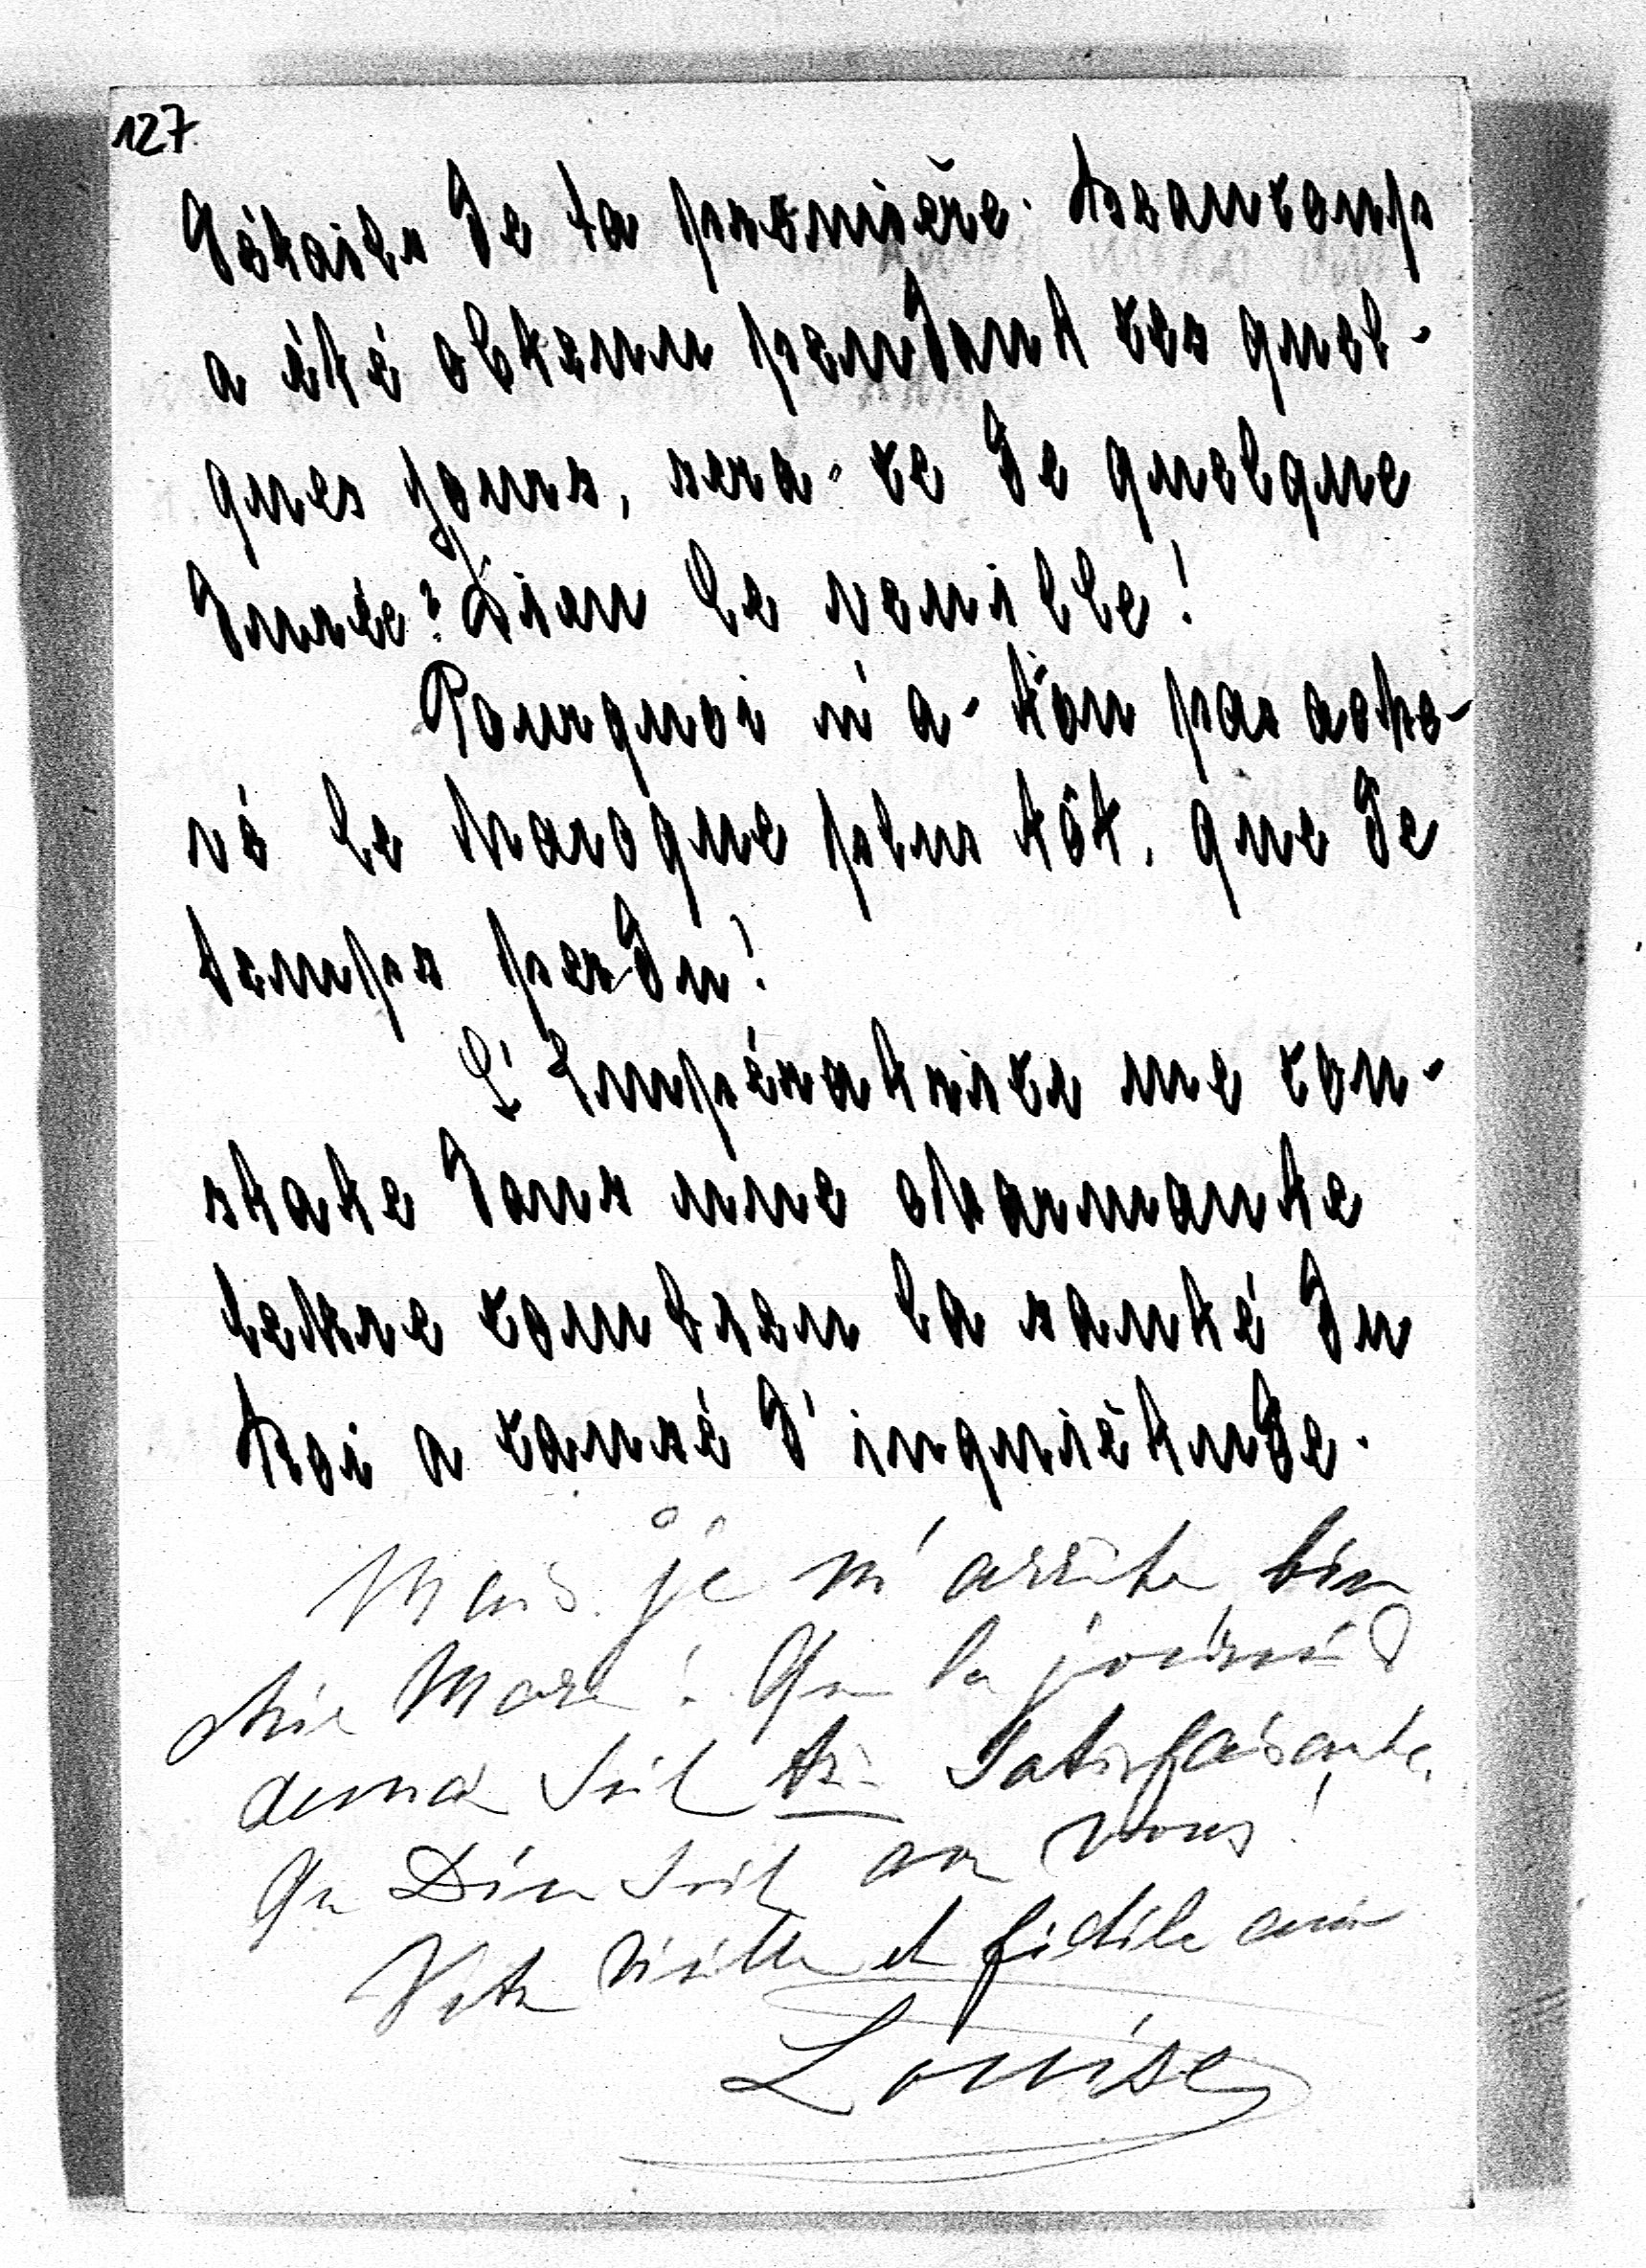 127
détails de ta première. Beaucoup
a été obtenu pendant ces quel-
ques jours, sera-ce de quelque
durée? Dieu le veuille!
Pourquoi n'a-t'on pas
le plus tôt, que de
temps perdu!
L'Impératrice me con-
state dans une charmante
lettre combien la santé du
Roi a causé d'inquiétude.
Mais je m'arrête bien
chère Marie! Que la journée
soit très satisfaisante,
Que Dieu soit avec vous!
Votre vieille et fidèle amie
Louise